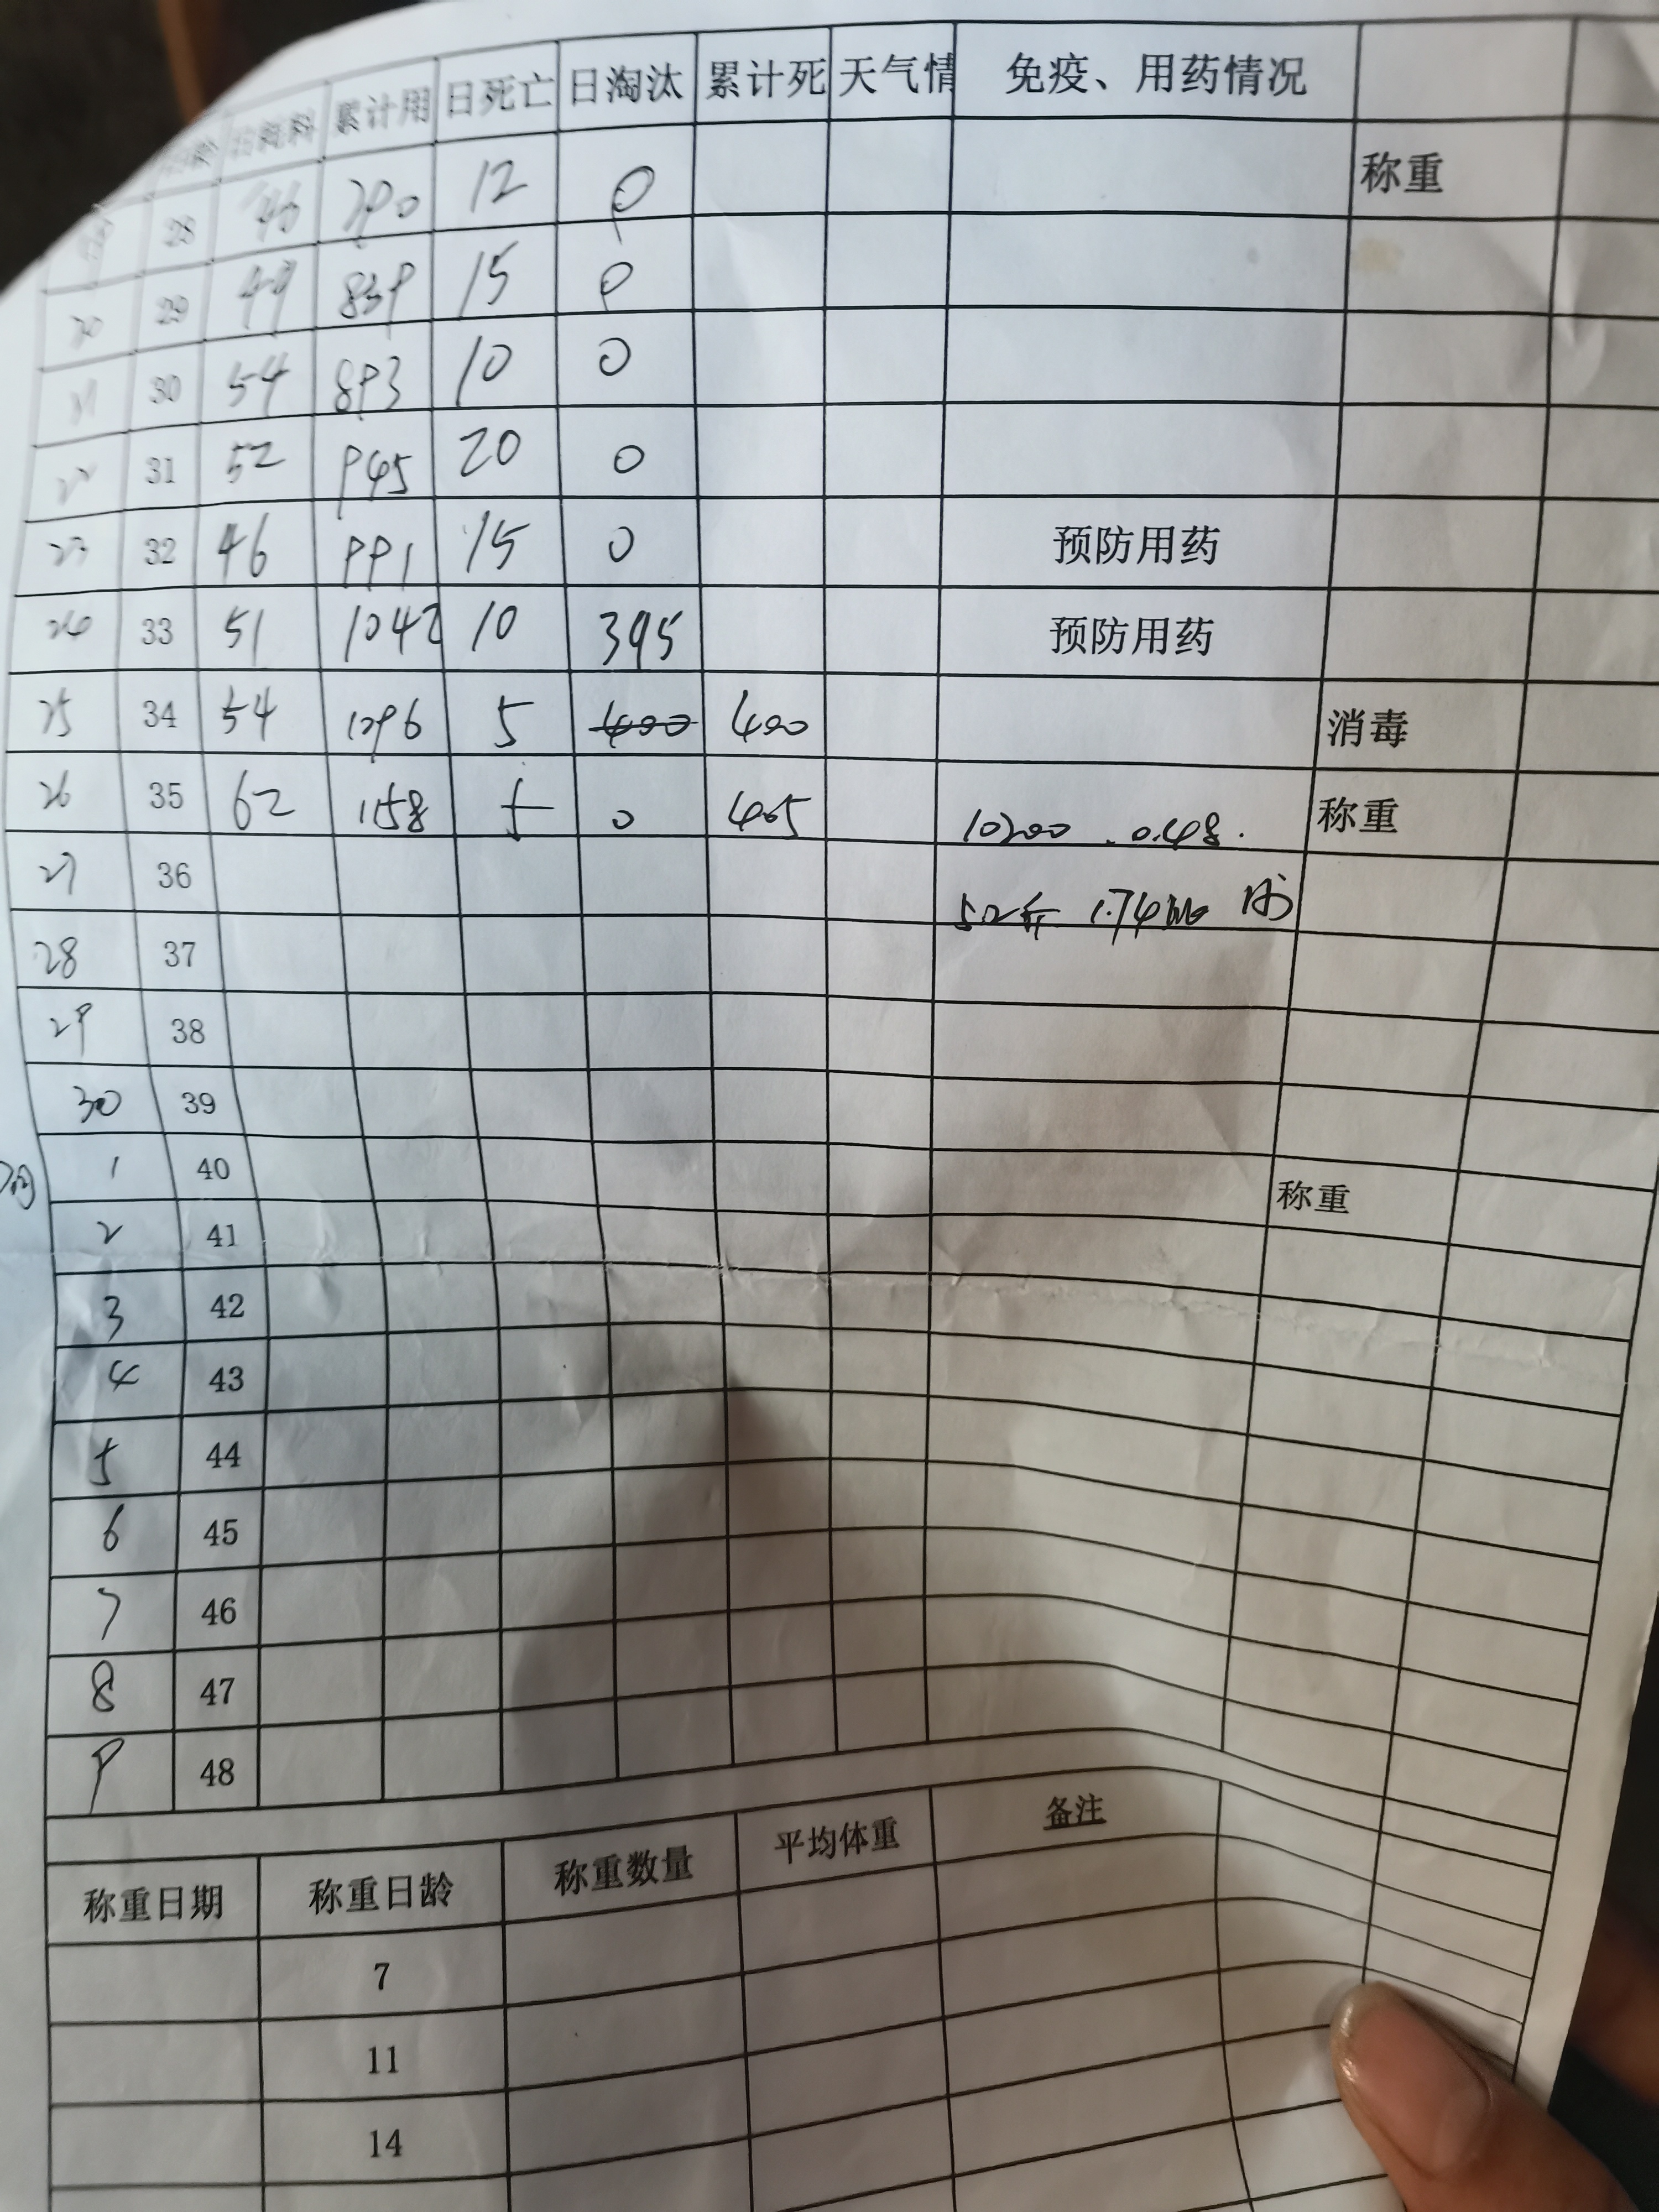 日耗料 累计用 日死亡 日淘汰 累计死 天气情 免疫、用药情况
28 46 790 12 0 称重
20 29 49 839 15 0
21 30 54 893 10 0
22 31 52 945 20 0
23 32 46 991 15 0 预防用药
24 33 51 1042 10 395 预防用药
25 34 54 1096 5 400 400 消毒
26 35 62 1158 5 0 405 10200 0.48. 称重
27 36 52午 1.74
28 37
29 38
30 39
1 40 称重
2 41
3 42
4 43
5 44
6 45
7 46
8 47
9 48
称重日期 称重日龄 称重数量 平均体重 备注
7
11
14